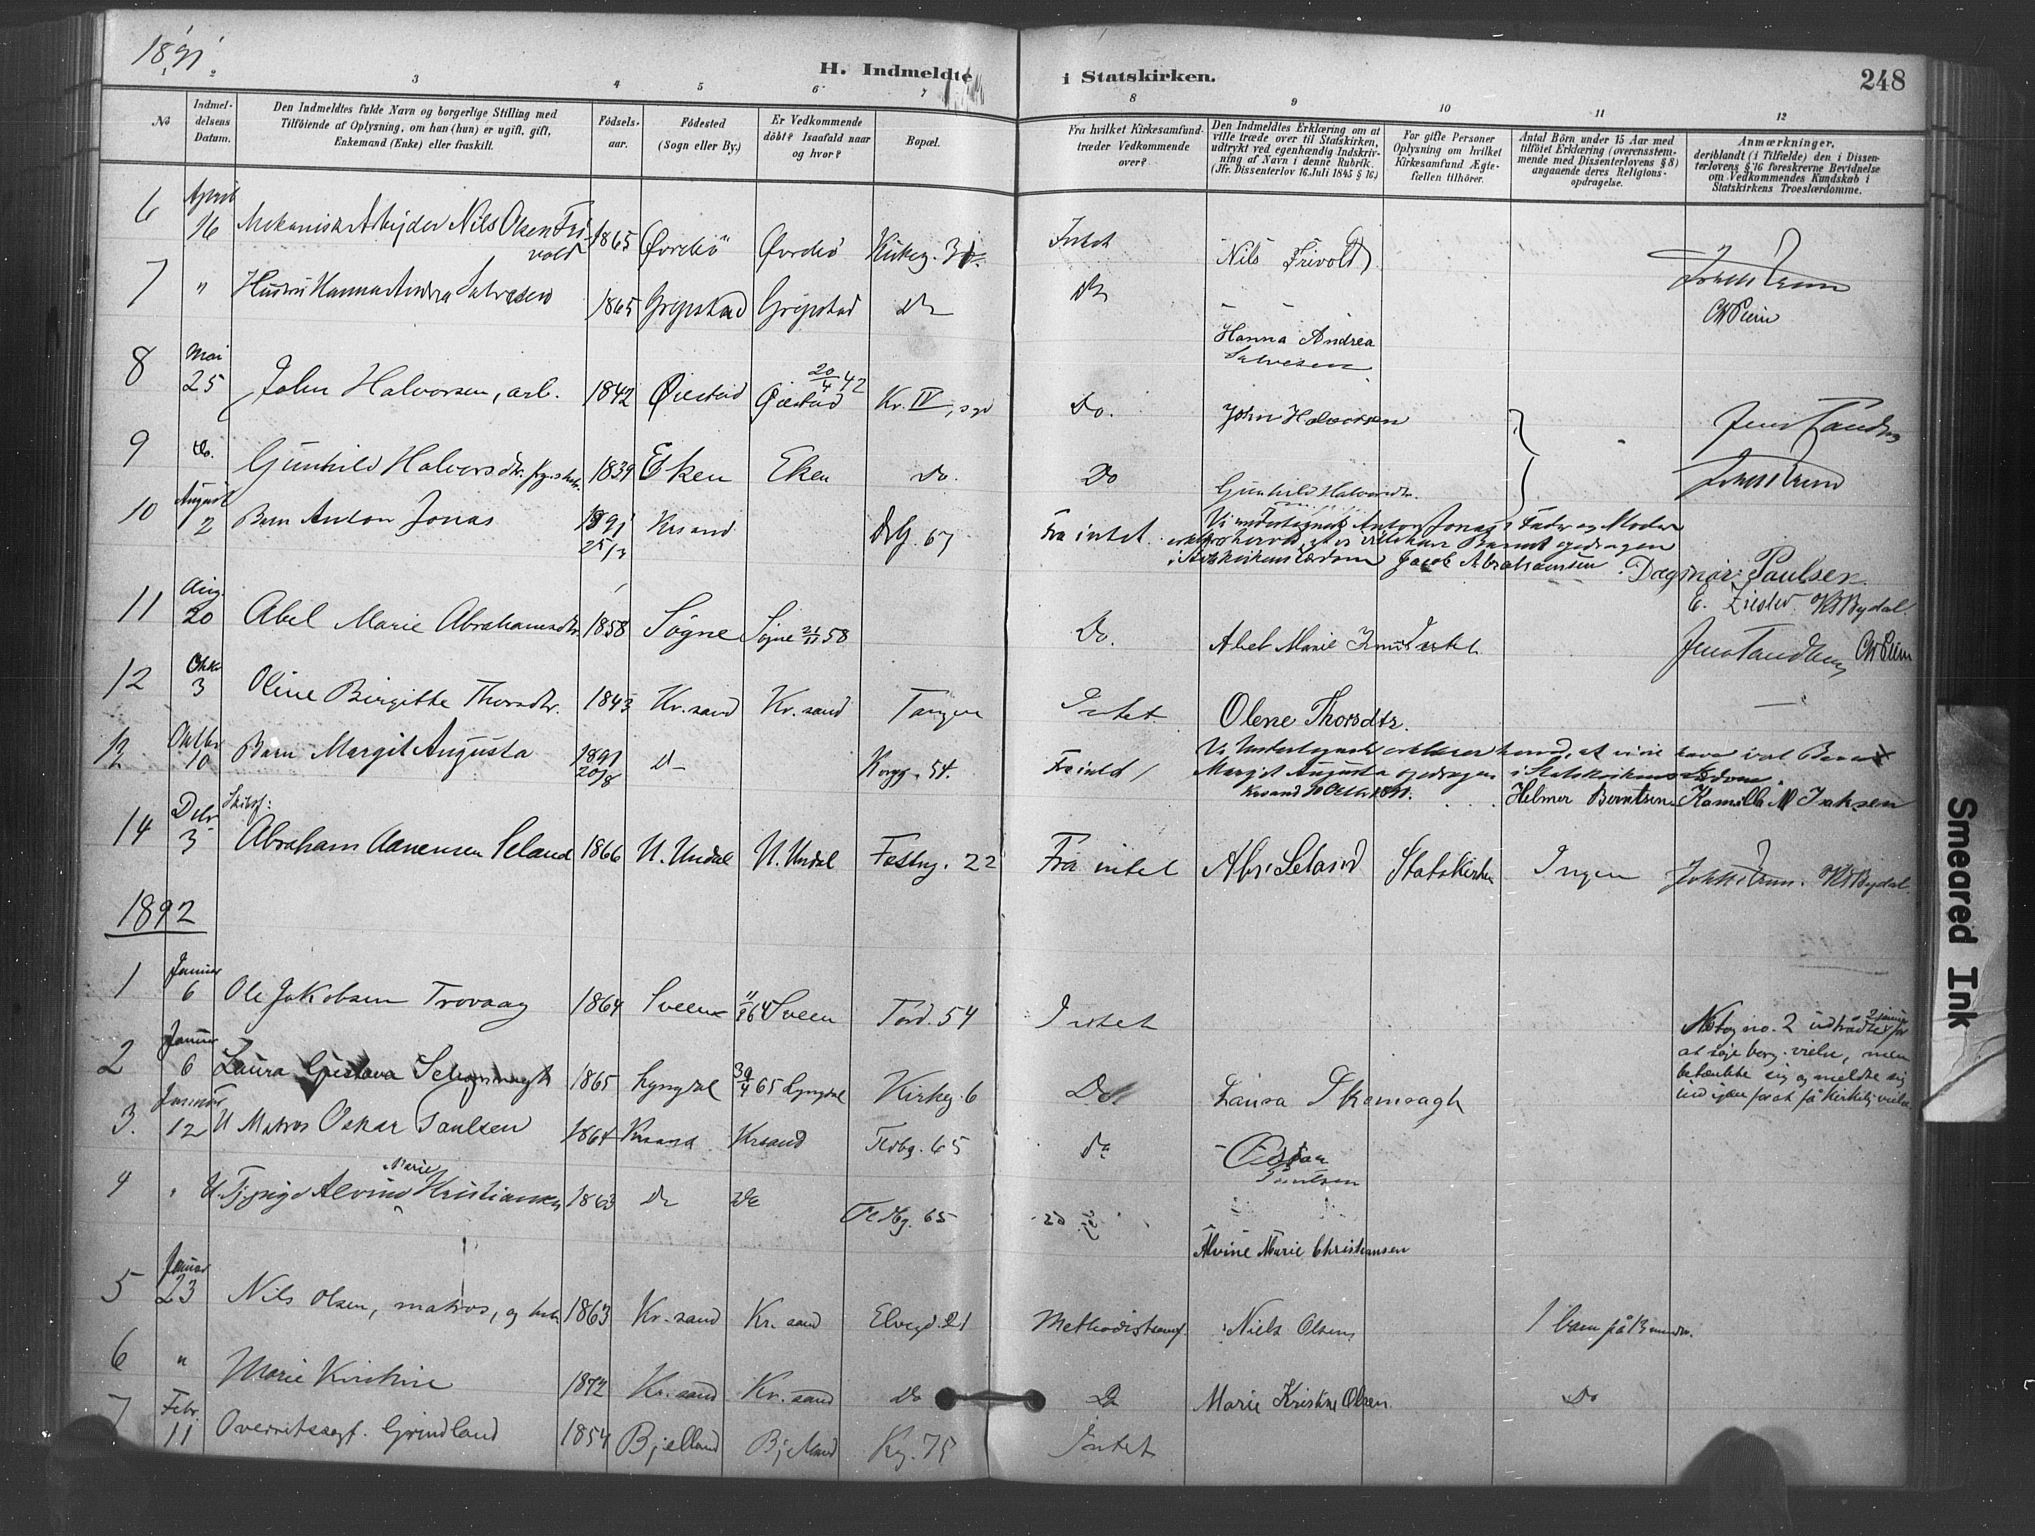 1891
H. Indmeldte i Statskirken.
248
1 2 3 4 5 6 7 8 9 10 11 12
No
Indmel-
delsens
Datum.
Den Indmeldtes fulde Navn og borgerlige Stilling med
Tilföiende af Oplysning, om han (hun) er ugift, gift,
Enkemand (Enke) eller fraskilt.
Födsels-
aar.
Födested
(Sogn eller By.)
Er Vedkommende
döbt? Isaafald naar
og hvor?
Bopæl.
Fra hvilket Kirkesamfund
træder Vedkommende
over?
Den Indmeldtes Erklæring om at
ville træde over til Statskirken,
udtrykt ved egenhændig Indskriv-
ning af Navn i denne Rubrik.
(Jfr. Dissenterlov 16. Juli 1845 § 16.)
For gifte Personer
Oplysning om hvilket
Kirkesamfund Ægte-
fællen tilhörer.
Antal Börn under 15 Aar med
tilföiet Erklæring (overensstem-
mende med Dissenterlovens § 8)
angaaende deres Religions-
opdragelse.
Anmærkninger,
deriblandt (i Tilfælde) den i Dissen-
terlovens § 16 foreskrevne Bevidnelse
om Vedkommendes Kundskab i
Statskirkens Troeslærdomme.
6 April 16 Mekanisk Arbejder Nils Olsen Tri-
vold 1865 Øvrebø Øvrebø Kirkeg. Intet Nils Trivold
7 " Hustru Hanna Andrea Salvesen 1865 Gripstad Gripstad Do Do
Hanna Andrea
Salvesen
8 Mai 25 John Halvorsen, arb. 1842 Øiestad 20/4 42 Øiestad Kr. IV, Do. John Halvorsen
9 do. Gunhild Halvorsdtr. 1839 Eken Eken Do. Do Gunhild Halvorsdtr.
10 August 2 Barn Anton Jonas 1891 25/3 Krsand 67 Fra intet Vi undertegnede Anton Jonas's Fader og Moder
erklærer herved, at vi vil have Barnet opdragen
i Statskirkens Lærdom Jacob Abrahamsen Dagmar Paulsen
11 Aug. 20 Abel Marie Abrahamsdtr. 1858 Søgne Søgne 58 Do. Abel Marie
12 Okt 3 Oline Birgitte Thorsdtr. 1843 Kr.sand Kr.sand Tangen Intet Olene Thorsdtr.
13 Oktbr 10 Barn Margit Augusta 1891 20/8 D- Kongg. 54. Fra intet Vi Undertegnede erklærer herved, at vi vil have vort Barn
Margit Augusta opdragen i Statskirkens Lærdom.
Krsand 10 Octb. 1891. Helmer Berntsen Kamilla M Isaksen
14 Debr 3 Abraham Aanensen Seland 1866 U. Undal U. Undal Festng. 22 Fra intet Abr. Seland Statskirken Ingen
1892
1 Januar 6 Ole Jakobsen Trovaag 1864 Sveen 64 Sveen Tord. 54 Intet
2 Januar 6 Laura Gustava 1865 Lyngdal 65 Lyngdal Kirkeg. 6 Do Laura Skomragh
no. 2 udtrådte 2 januar for
at søge borg. vielse, men
betænkte sig og meldte sig
ind igjen for at få kirkelig vielse.
3. Januar 12 U Matros Oskar Paulsen 1864 Krsand Krsand Fldbg. 65 Do Oskar
Paulsen
4 " U. Tjpige Alvine Marie Kristiansen 1863 Do Do Feldbg. 65
Alvine Marie Christiansen
5 Januar 23 Nils Olsen, matros, og 1863 Kr.sand Kr.sand Elvegd. 21 Methodistsamf. Niels Olsen 1 barn på 13
6 " Marie Kristine 1872 Kr.sand Kr.sand Do Do Marie Kristine Olsen Do
7 Febr. 11 Overretssagf. Grindland 1854 Bjelland Bjelland Kg. 75 Intet
Smeared Ink